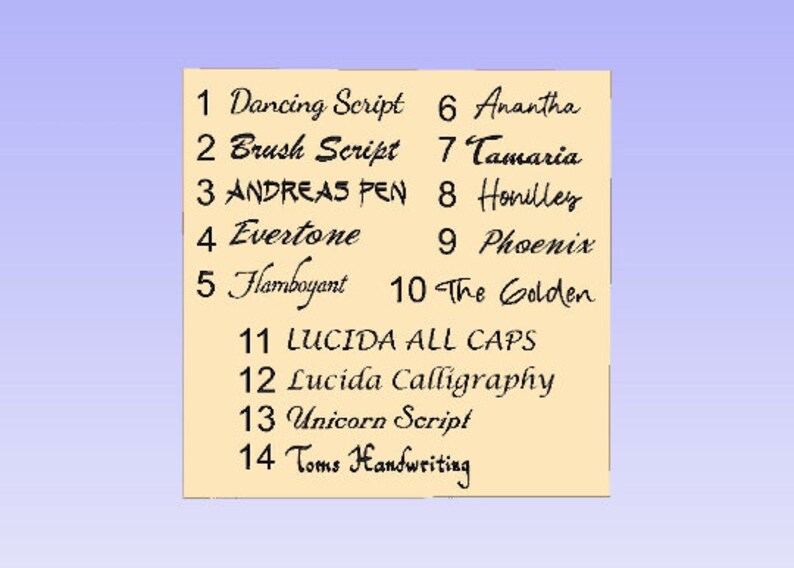 1 Dancing Script
2 Brush Script
3 ANDREAS PEN
4 Evertone
5 Flamboyant
6 Anantha
7 Tamaria
8 Honilley
9 Phoenix
10 The Golden
11 LUCIDA ALL CAPS
12 Lucida Calligraphy
13 Unicorn Script
14 Toms Handwriting